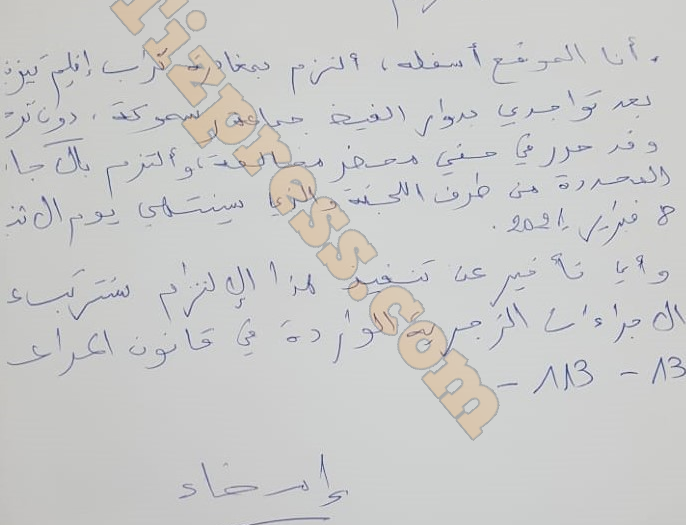 أنا الموقع أسفله، ألتزم بمغادرة تراب إقليم تيزنـ
بعد تواجدي بدوار الفيض جماعة سموكة، دون تر
وقد حرر في حقي محضر مخالفة، وألتزم بالآجا
المحددة من طرف اللجنة والذي سينتهي يوم الاثنـ
8 فبراير 2021.
وأيا تأخير عن تنفيذ هذا الإلتزام ستترتب
الاجراءات الزجرية الواردة في قانون المراعـ
13 - 113 -
إمضاء
tizpress.com